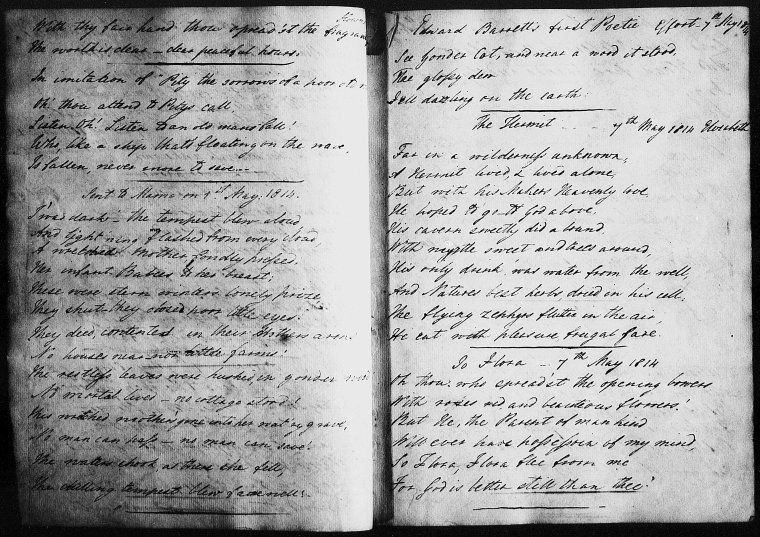 With thy fair hand thou spread'st the
The world is dear – dear peaceful hours.
In imitation of "Pity the sorrows of a poor old
Oh! thou attend to Pity's call
Listen, Oh! Listen to an old man's fall!
Who, like a ship that's floating on the wave,
Is fallen, never more to save –
Sent to Mama on 1st May. 1814.
T'was dark – the tempest blew aloud
And lightning flashed from every cloud
A wretched mother fondly pressed,
Her infant Babies to her breast;
These were stern winters lonely prize
They shut – they closed poor little eyes!
They died contented in their Mothers arms!
No houses near – no little farms!
The restless leaves were hushed in yonder wood
No mortal lives – no cottage stood!
This wretched mother's gone into her watry grave,
No man can pass – no man can save!
The waters shook as there she fell,
The chilling tempest blew farewell!
Edward Barrett's first Poetic Effort – 7th May 1814
See yonder Cot, and near a wood it stood,
The glossy dew
Fell dazzling on the earth!
The Hermit – – 7th May 1814 Elizabeth
Far in a wilderness unknown,
A Hermit lived, & lives alone,
But with his Makers Heavenly love,
He hoped to go to God above,
His cavern sweetly did abound,
With myrtle sweet and trees around,
His only drink was water from the well,
And Natures best herbs, dried in his cell,
The flying zephyrs flutter in the air,
He eat with pleasure frugal fare.
To Flora – 7th May 1814
Oh thou, who spread'st the opening bowers
With roses red, and beauteous flowers!
But He, the Parent of mankind
Will ever have possession of my mind,
So Flora, Flora flee from me
For God is better still than thee!